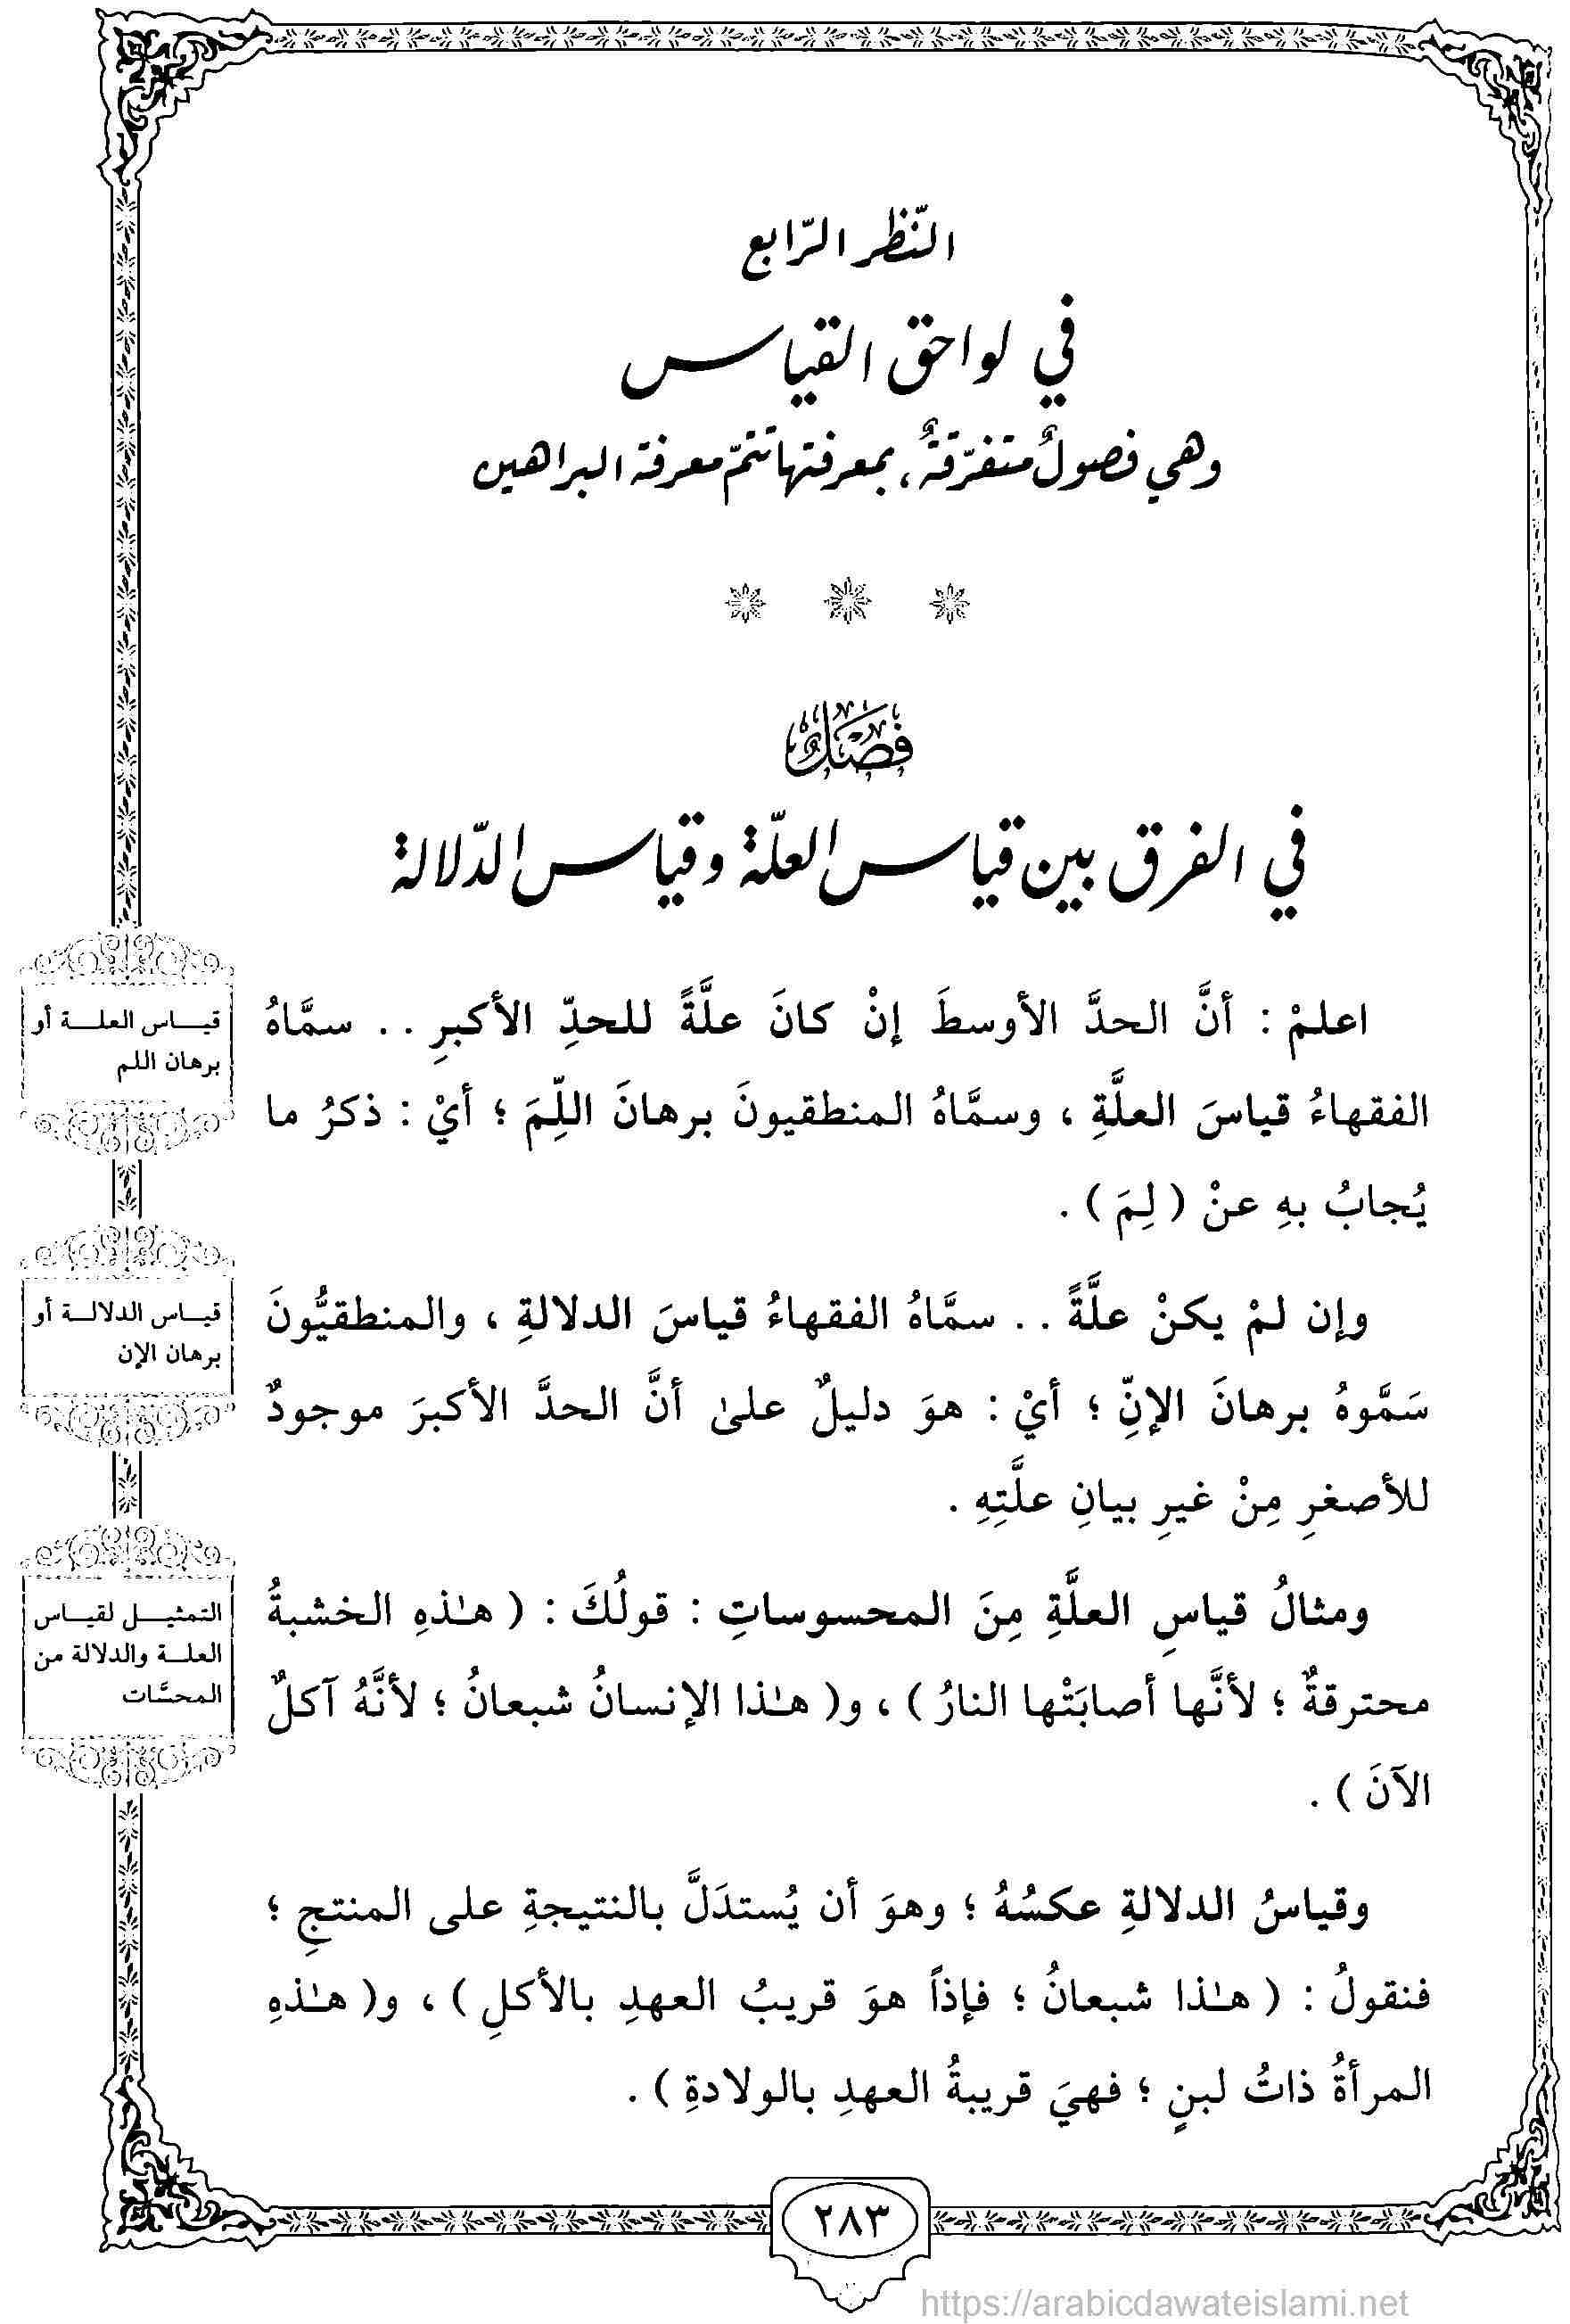 النّظر الرّابع
في لواحق القياس
وهي فصولٌ متفرّقةٌ، بمعرفتها تتمّ معرفة البراهين
فصل
في الفرق بين قياس العلّة وقياس الدّلالة
اعلمْ : أنَّ الحدَّ الأوسطَ إنْ كانَ علَّةً للحدِّ الأكبرِ . . سمَّاهُ
الفقهاءُ قياسَ العلَّةِ ، وسمَّاهُ المنطقيونَ برهانَ اللِّمَ ؛ أيْ : ذكرُ ما
يُجابُ بهِ عنْ ( لِمَ ) .
قياس العلة أو
برهان اللم
وإن لمْ يكنْ علَّةً . . سمَّاهُ الفقهاءُ قياسَ الدلالةِ ، والمنطقيُّونَ
سَمَّوهُ برهانَ الإنِّ ؛ أيْ : هوَ دليلٌ علىٰ أنَّ الحدَّ الأكبرَ موجودٌ
للأصغرِ مِنْ غيرِ بيانِ علَّتِهِ .
قياس الدلالة أو
برهان الإن
ومثالُ قياسِ العلَّةِ مِنَ المحسوساتِ : قولُكَ : ( هـٰذهِ الخشبةُ
محترقةٌ ؛ لأنَّها أصابَتْها النارُ ) ، و( هـٰذا الإنسانُ شبعانُ ؛ لأنَّهُ آكلٌ
الآنَ ) .
التمثيل لقياس
العلة والدلالة من
المحسَّات
وقياسُ الدلالةِ عكسُهُ ؛ وهوَ أن يُستدَلَّ بالنتيجةِ على المنتجِ ؛
فنقولُ : ( هـٰذا شبعانُ ؛ فإذاً هوَ قريبُ العهدِ بالأكلِ ) ، و( هـٰذهِ
المرأةُ ذاتُ لبنٍ ؛ فهيَ قريبةُ العهدِ بالولادةِ ) .
٢٨٣
https://arabicdawateislami.net